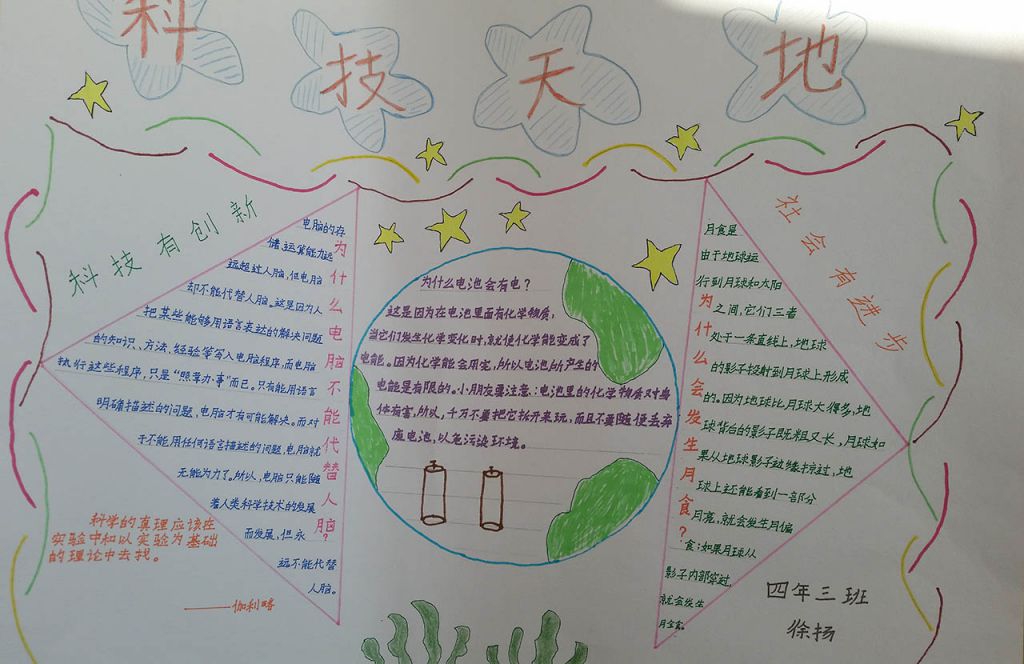 科技天地
科技有创新
为什么电脑不能代替人脑?
电脑的存
储、运算能力远
远超过人脑,但电脑
却不能代替人脑。这是因为人
把某些能够用语言表达的解决问题
的知识、方法、经验等写入电脑程序,而电脑
执行这些程序,只是“照章办事”而已。只有能用语言
明确描述的问题,电脑才有可能解决。而对
于不能用任何语言描述的问题,电脑就
无能为力了。所以,电脑只能随
着人类科学技术的发展
而发展,但永
远不能代替
人脑。
科学的真理应该在
实验中和以实验为基础
的理论中去找。
——伽利略
为什么电池会有电?
这是因为在电池里面有化学物质,
当它们发生化学变化时,就使化学能变成了
电能。因为化学能会用完,所以电池所产生的
电能是有限的。小朋友要注意:电池里的化学物质对身
体有害,所以,千万不要把它拆开来玩,而且不要随便丢弃
废电池,以免污染环境。
社会有进步
为什么会发生月食?
月食是
由于地球运
行到月球和太阳
之间,它们三者
处于一条直线上,地球
的影子投射到月球上形成
的。因为地球比月球大得多,地
球背后的影子既粗又长,月球如
果从地球影子边缘掠过,地
球上还能看到一部分
月亮,就会发生月偏
食;如果月球从
影子内部穿过,
就会发生
月全食。
四年三班
徐扬